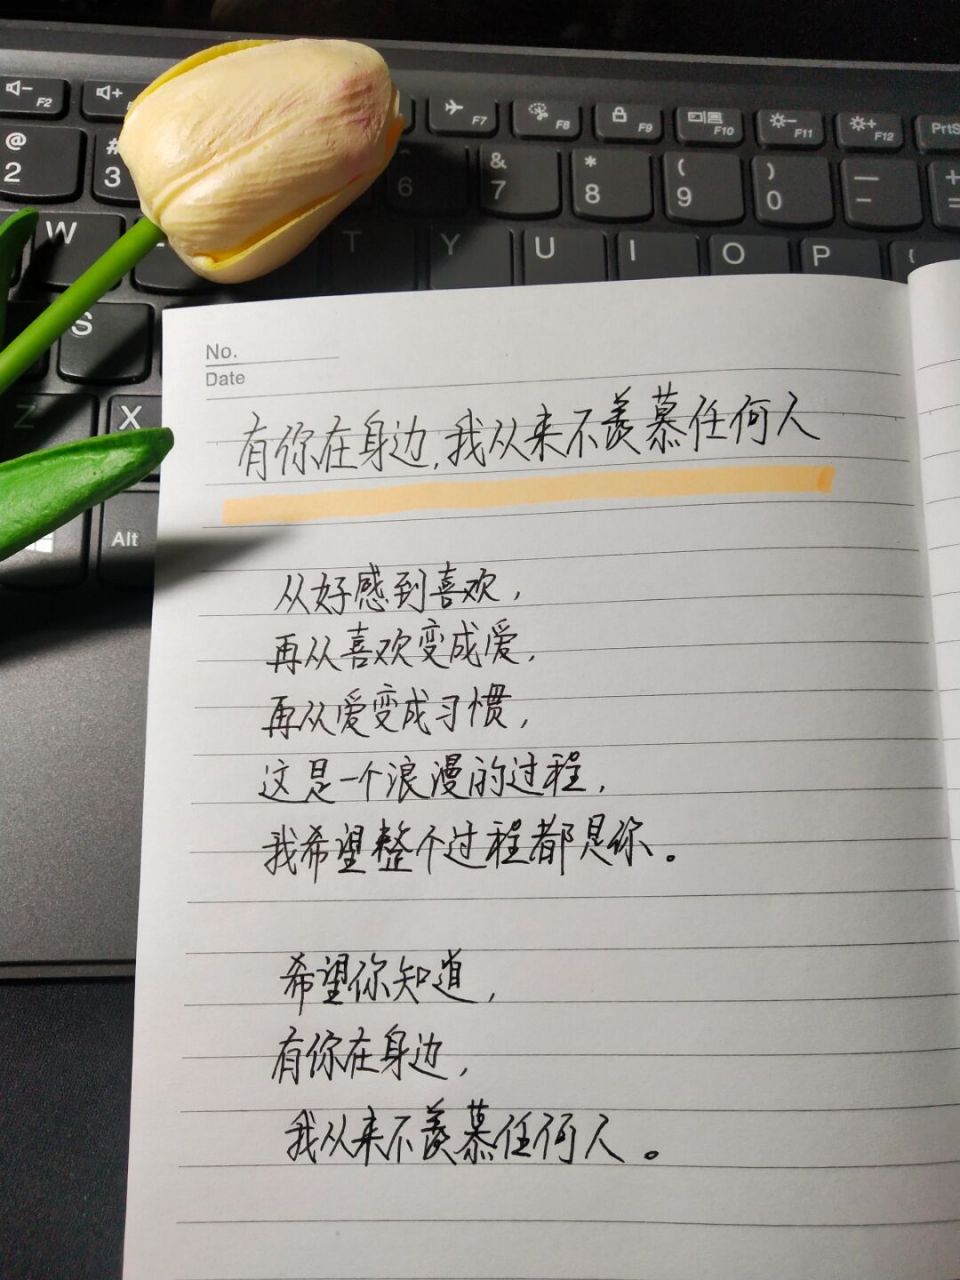 F2
F7
F8
F9
F10
F11
F12
PrtS
@
2
#
3
6
&
7
*
8
(
9
)
0
W
T
Y
U
I
O
P
{
S
Z
X
Alt
No.
Date
有你在身边,我从来不羡慕任何人
从好感到喜欢,
再从喜欢变成爱,
再从爱变成习惯,
这是一个浪漫的过程,
我希望整个过程都是你。
希望你知道,
有你在身边,
我从来不羡慕任何人。